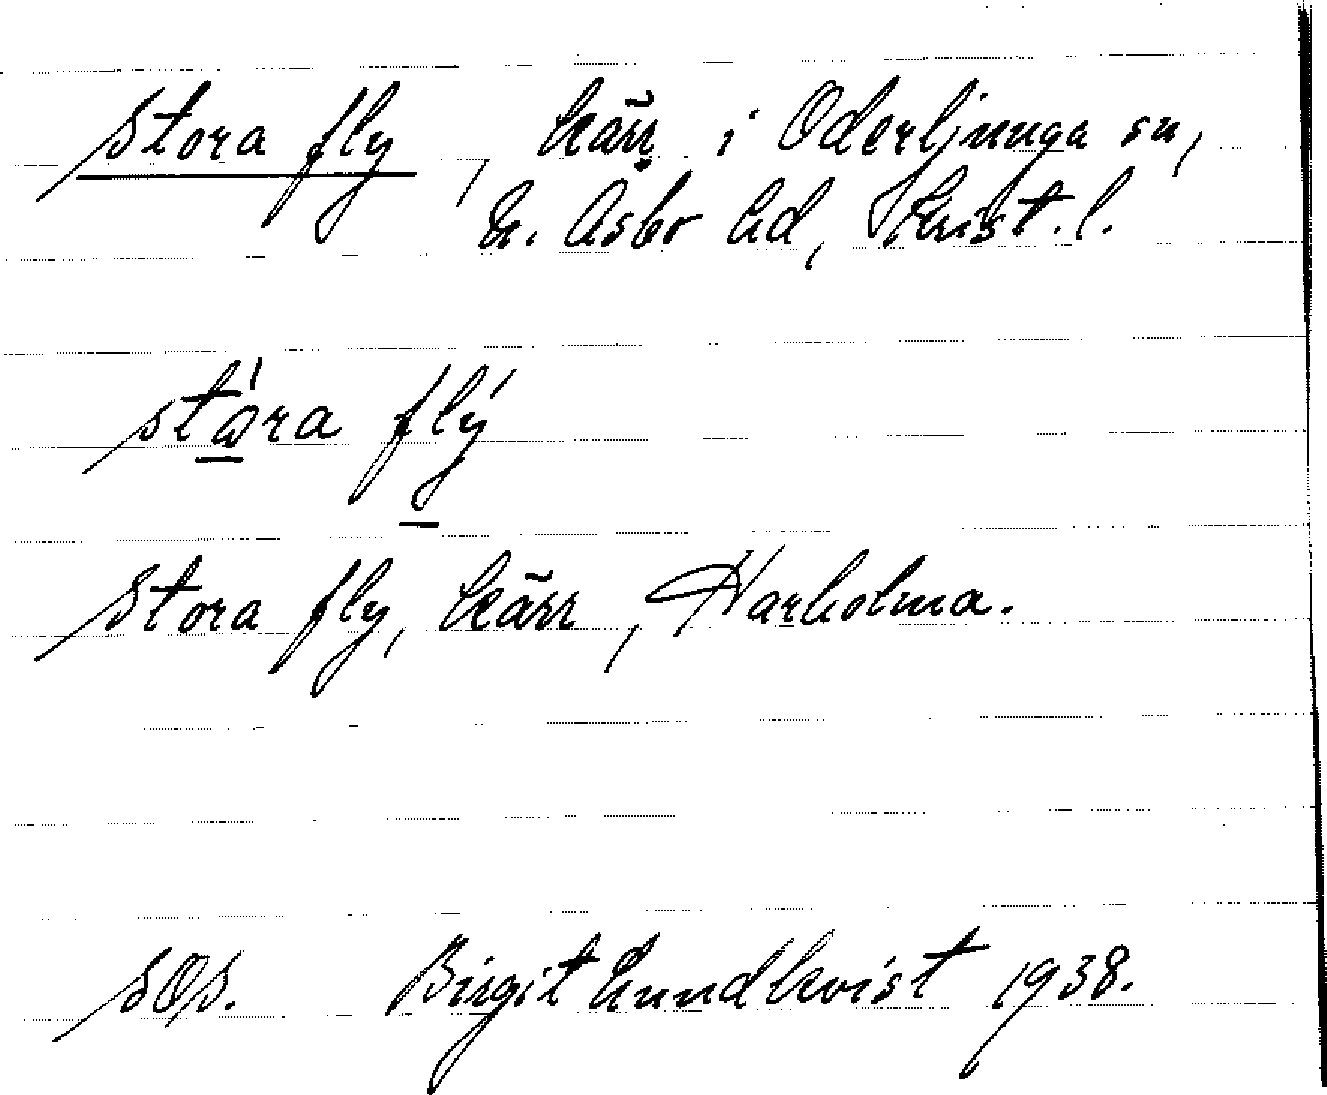 Stora fly, kärr i Oderljunga sn,
N. Åsbo hd, Krist. l.
stɷ́ra flý
Stora fly, kärr, Harholma.
SOS. Birgit Lundkvist 1938.